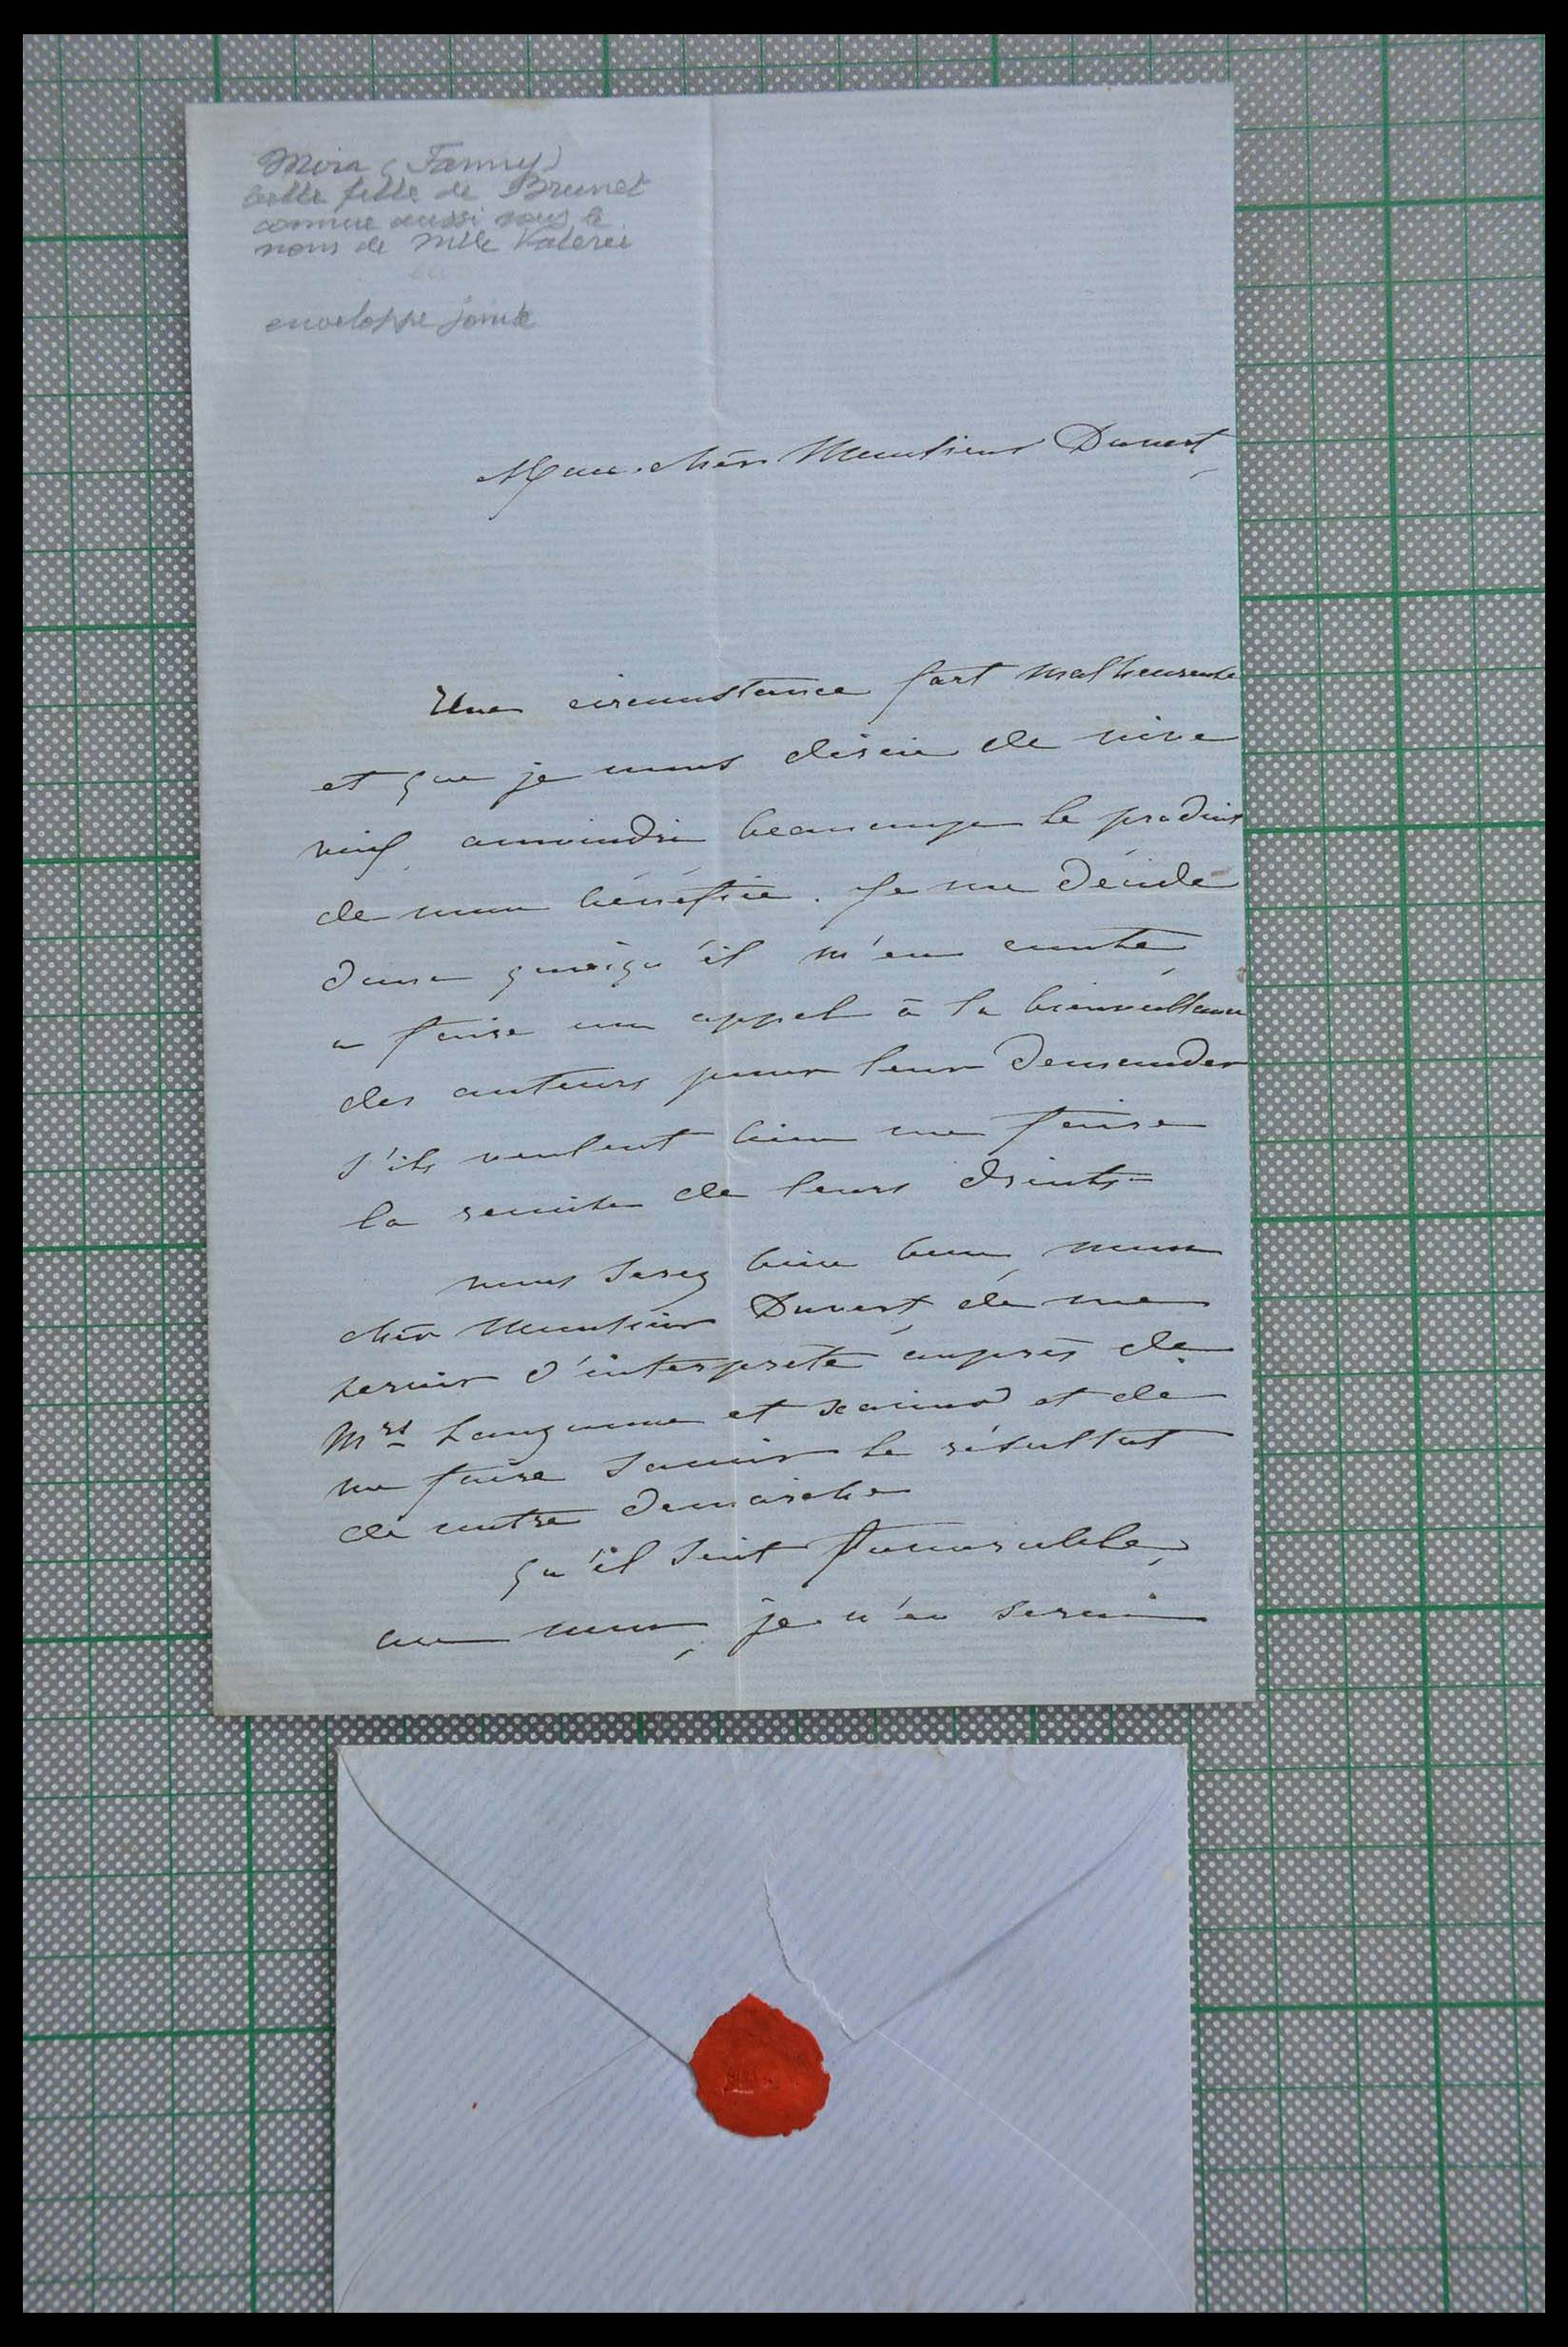 Mira (Fanny)
belle fille de Brunet
connue aussi sous le
nom de Mlle Valerie
enveloppe jointe
Mon cher Monsieur Duvert,
Une circonstance fort malheureuse
et que je vous dirai de vive
voix, amoindri beaucoup le produit
de mon bénéfice. Je me décide
donc quoiqu'il m'en coute,
a faire un appel à la bienveillance
des auteurs pour leur demander
s'ils veulent bien me faire
la remise de leurs droits
vous serez bien bon, mon
cher Monsieur Duvert, de me
servir d'interprète auprès de
Mrs Lauzanne et et de
me faire savoir le résultat
de votre demarche
qu'il soit favorable,
ou non, je n'en serai